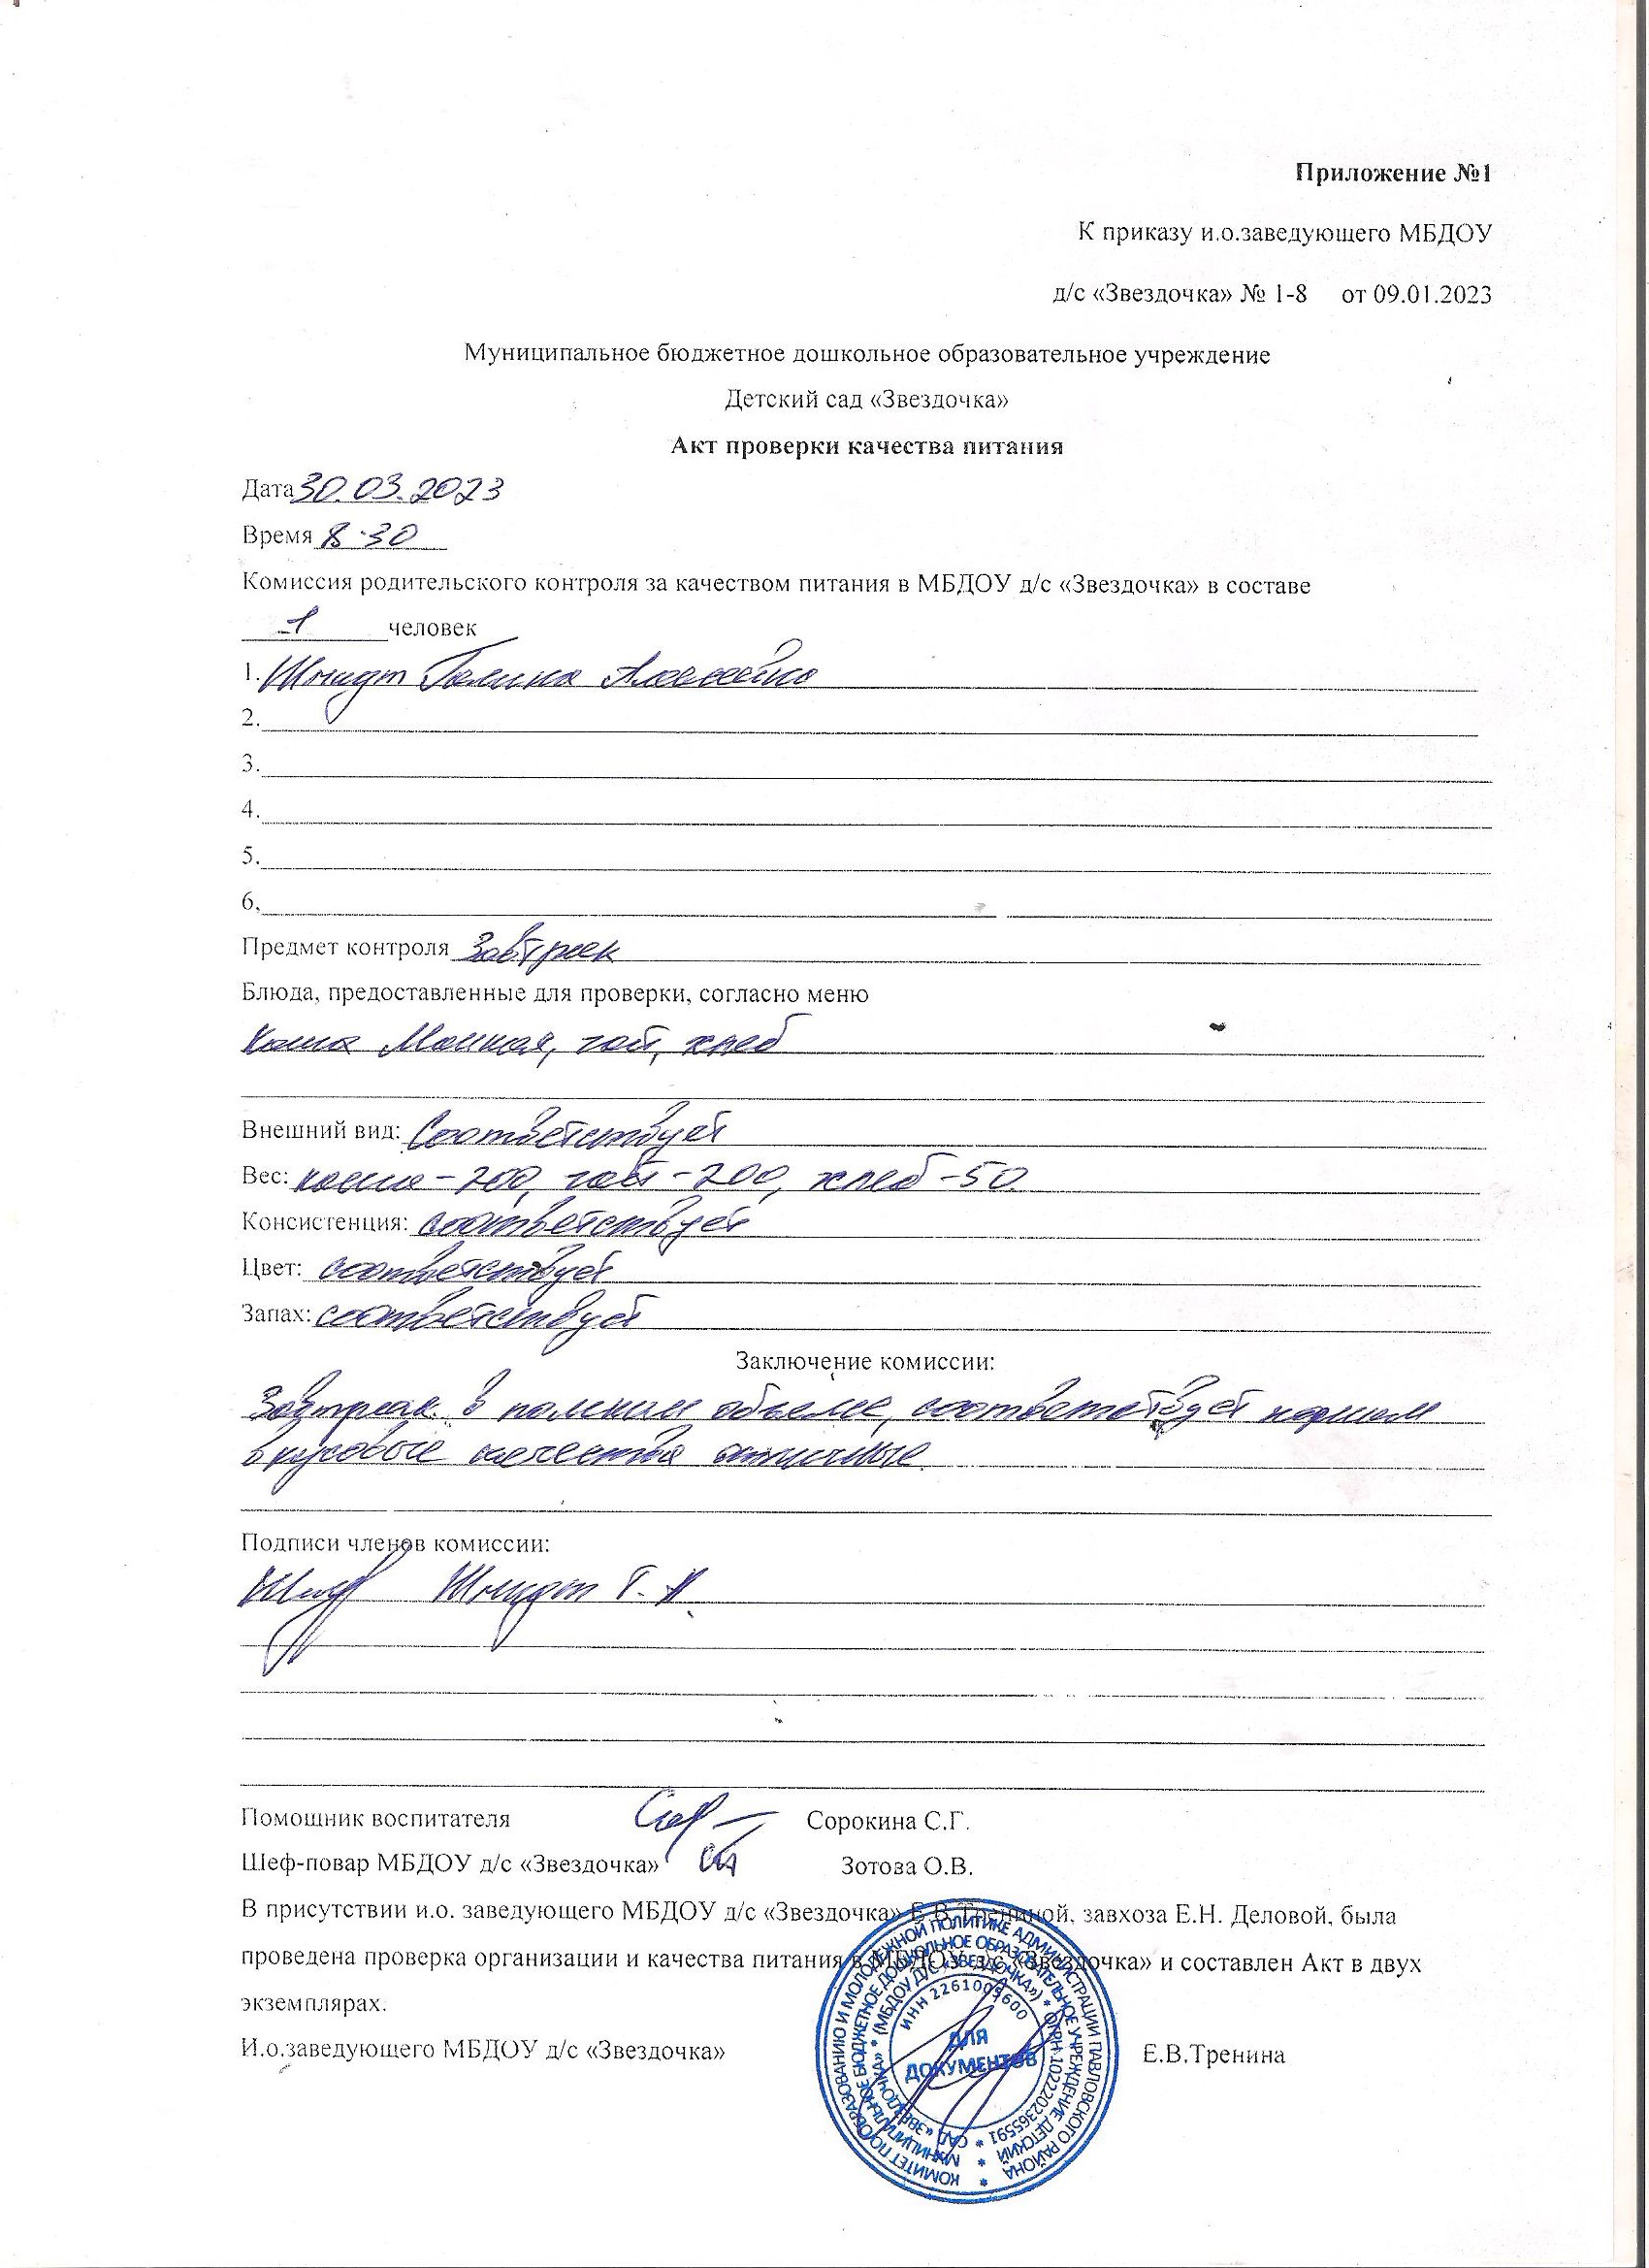 Приложение №1
К приказу и.о.заведующего МБДОУ
д/с «Звездочка» № 1-8 от 09.01.2023
Муниципальное бюджетное дошкольное образовательное учреждение
Детский сад «Звездочка»
Акт проверки качества питания
Дата 30.03.2023
Время 8-30
Комиссия родительского контроля за качеством питания в МБДОУ д/с «Звездочка» в составе
1 человек
1. Шмидт Галина
2.
3.
4.
5.
6.
Предмет контроля Завтрак
Блюда, предоставленные для проверки, согласно меню
Каша Манная, чай, хлеб
Внешний вид: Соответствует
Вес: каша-200, чай-200, хлеб-50.
Консистенция: соответствует
Цвет: соответствует
Запах: соответствует
Заключение комиссии:
Завтрак в полном объеме, соответствует нормам
вкусовые качества отличные.
Подписи членов комиссии:
Шмидт Г. А.
Помошник воспитателя Сорокина С.Г.
Шеф-повар МБДОУ д/с «Звездочка» Зотова О.В.
В присутствии и.о. заведующего МБДОУ д/с «Звездочка» Е.В.Трениной, завхоза Е.Н. Деловой, была
проведена проверка организации и качества питания в МБДОУ д/с «Звездочка» и составлен Акт в двух
экземплярах.
И.о.заведующего МБДОУ д/с «Звездочка» Е.В.Тренина
КОМИТЕТ ПО ОБРАЗОВАНИЮ И МОЛОДЕЖНОЙ ПОЛИТИКЕ АДМИНИСТРАЦИИ ПАВЛОВСКОГО РАЙОНА
МУНИЦИПАЛЬНОЕ БЮДЖЕТНОЕ ДОШКОЛЬНОЕ ОБРАЗОВАТЕЛЬНОЕ УЧРЕЖДЕНИЕ ДЕТСКИЙ
САД «ЗВЕЗДОЧКА» * (МБДОУ Д/С «ЗВЕЗДОЧКА») * ОГРН 1022202365591 *
ИНН 2261005600
ДЛЯ
ДОКУМЕНТОВ